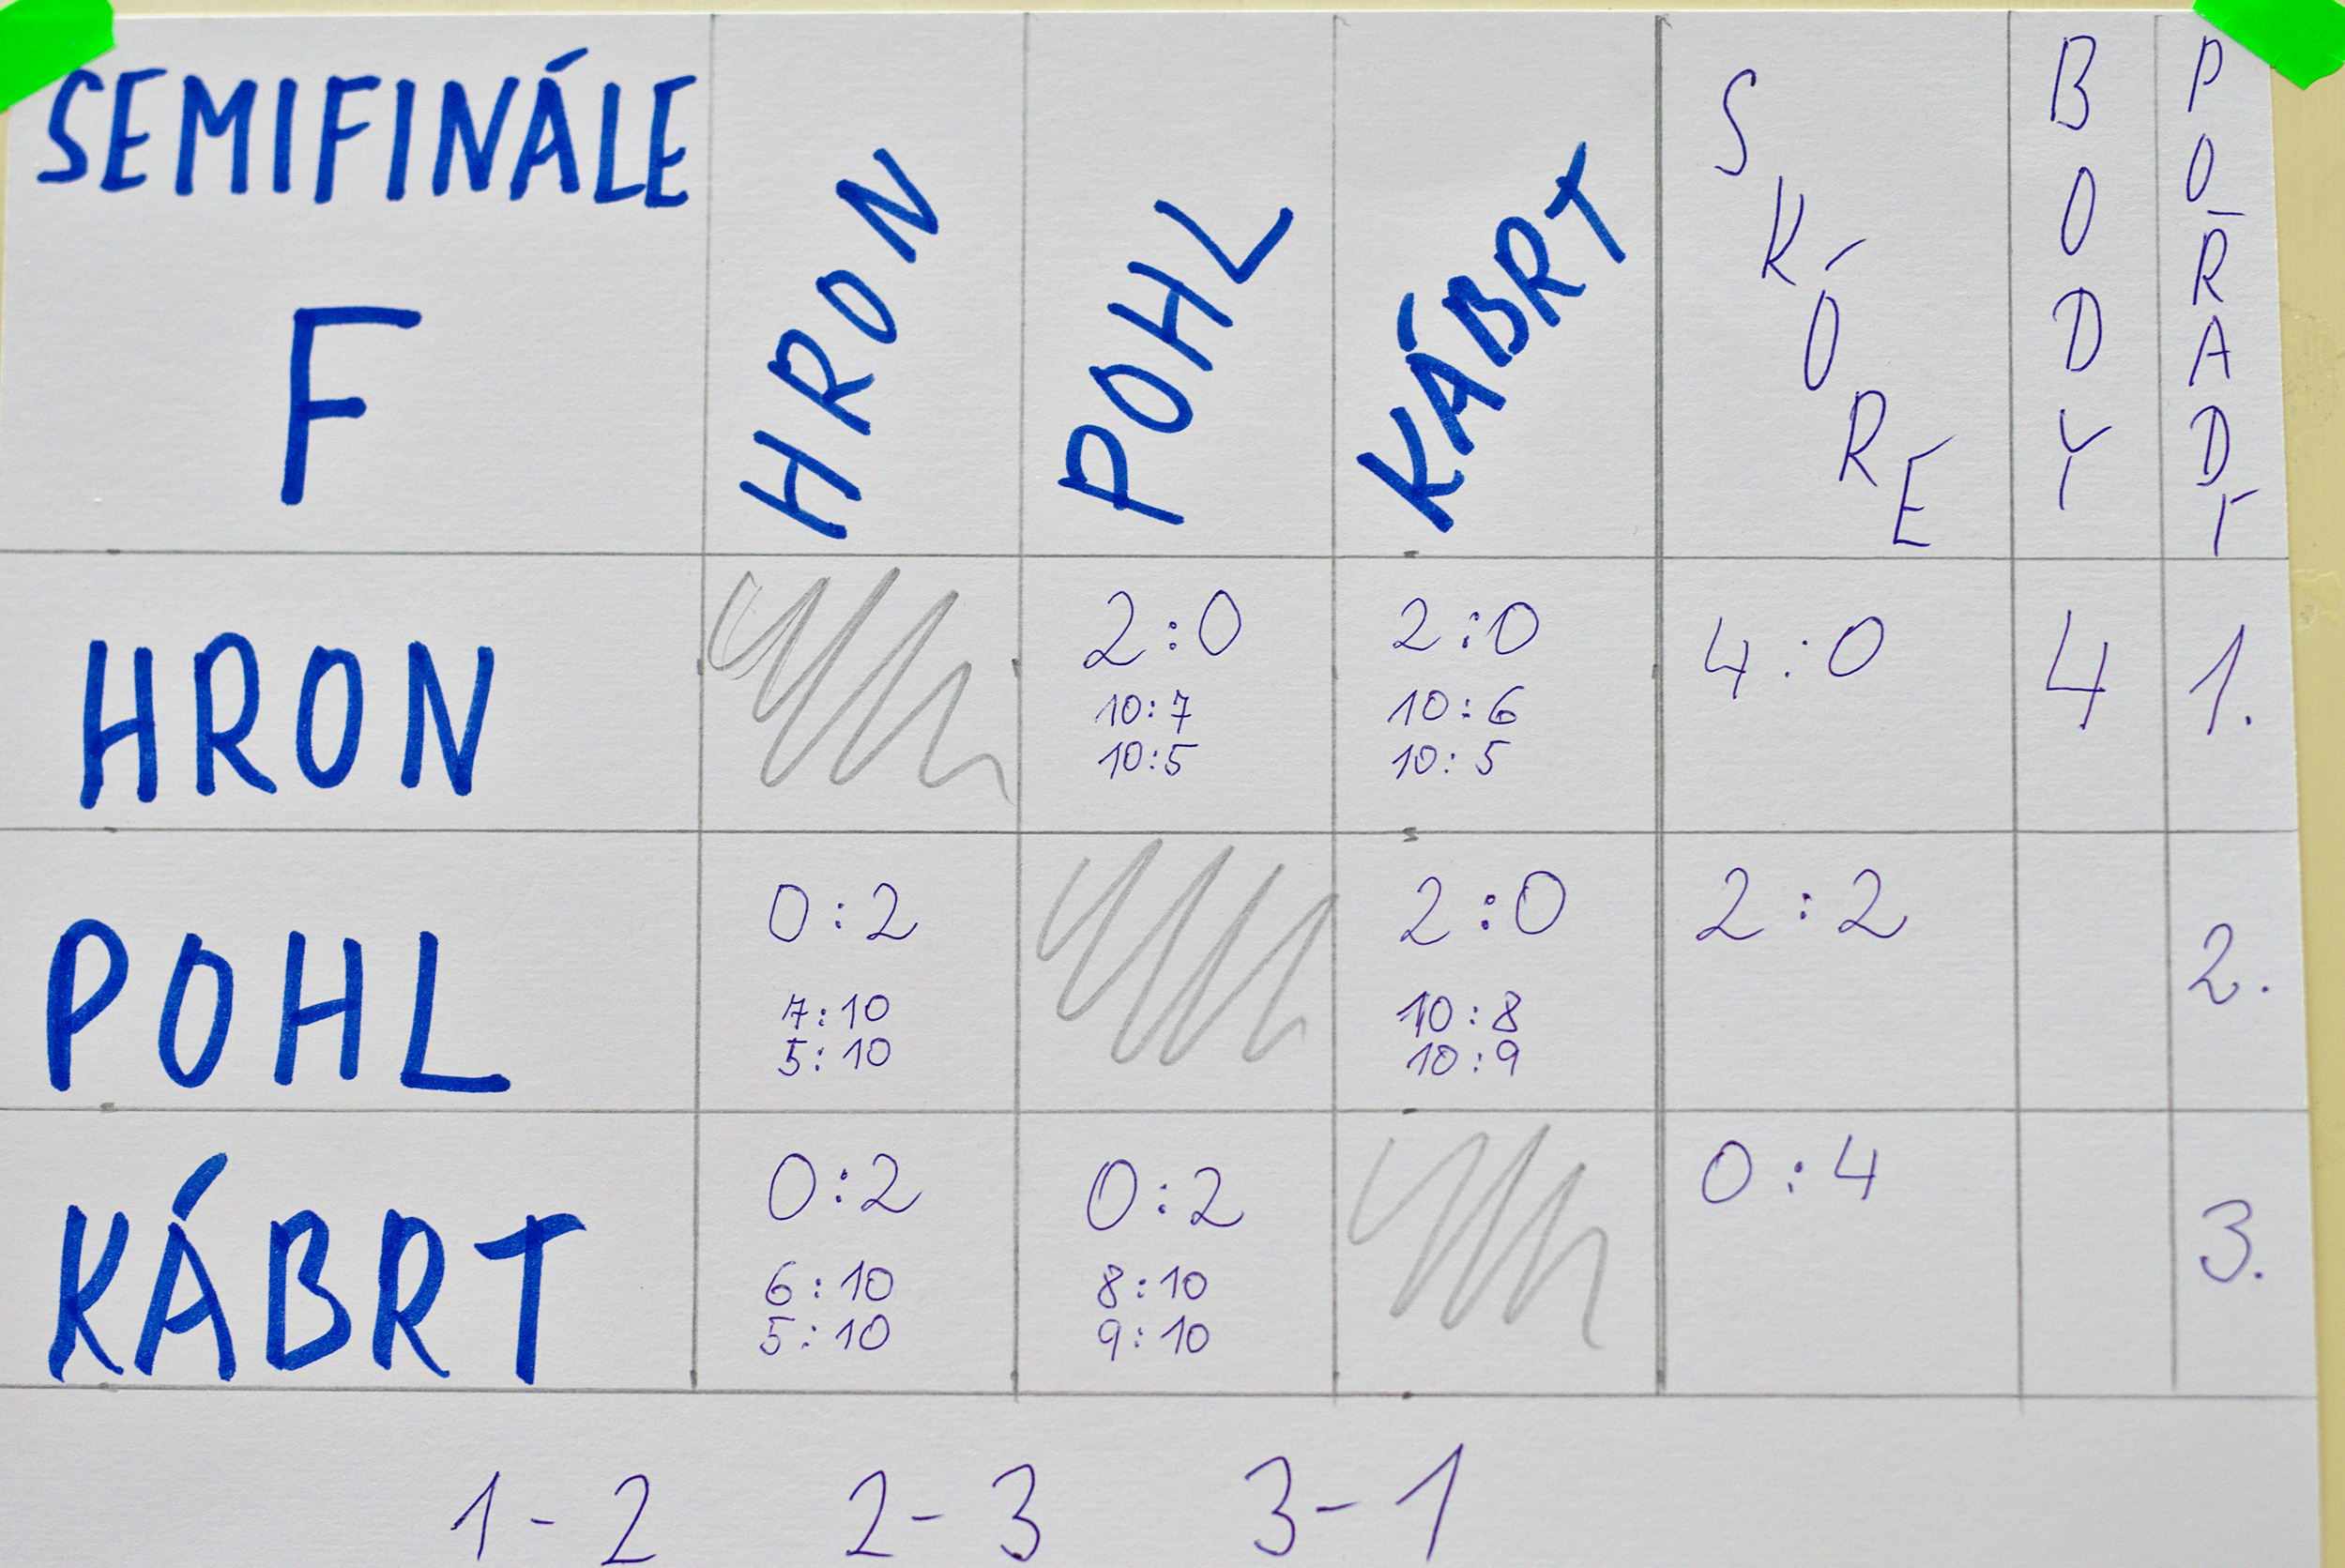 SEMIFINÁLE
F
HRON
POHL
KÁBRT
SKÓRÉ
BODY
POŘADÍ
HRON 2:0 2:0 4:0 4 1.
10:7 10:6
10:5 10:5
POHL 0:2 2:0 2:2 2.
7:10 10:8
5:10 10:9
KÁBRT 0:2 0:2 0:4 3.
6:10 8:10
5:10 9:10
1-2 2-3 3-1